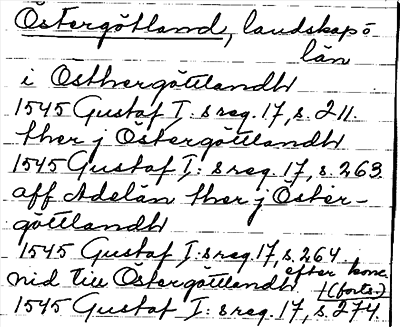 Östergötland, landskap o
län
i Östhergöttlandh
1545 Gustaf I: s reg. 17, s. 211.
ther j Östergöttlandh
1545 Gustaf I: s reg. 17, s. 263.
aff Adelän ther j Öster-
göttlandh
1545 Gustaf I: s reg. 17, s. 264.
nid till Östergöttlandh efter kom.
(forts.)
1545 Gustaf I: s reg. 17, s. 274.